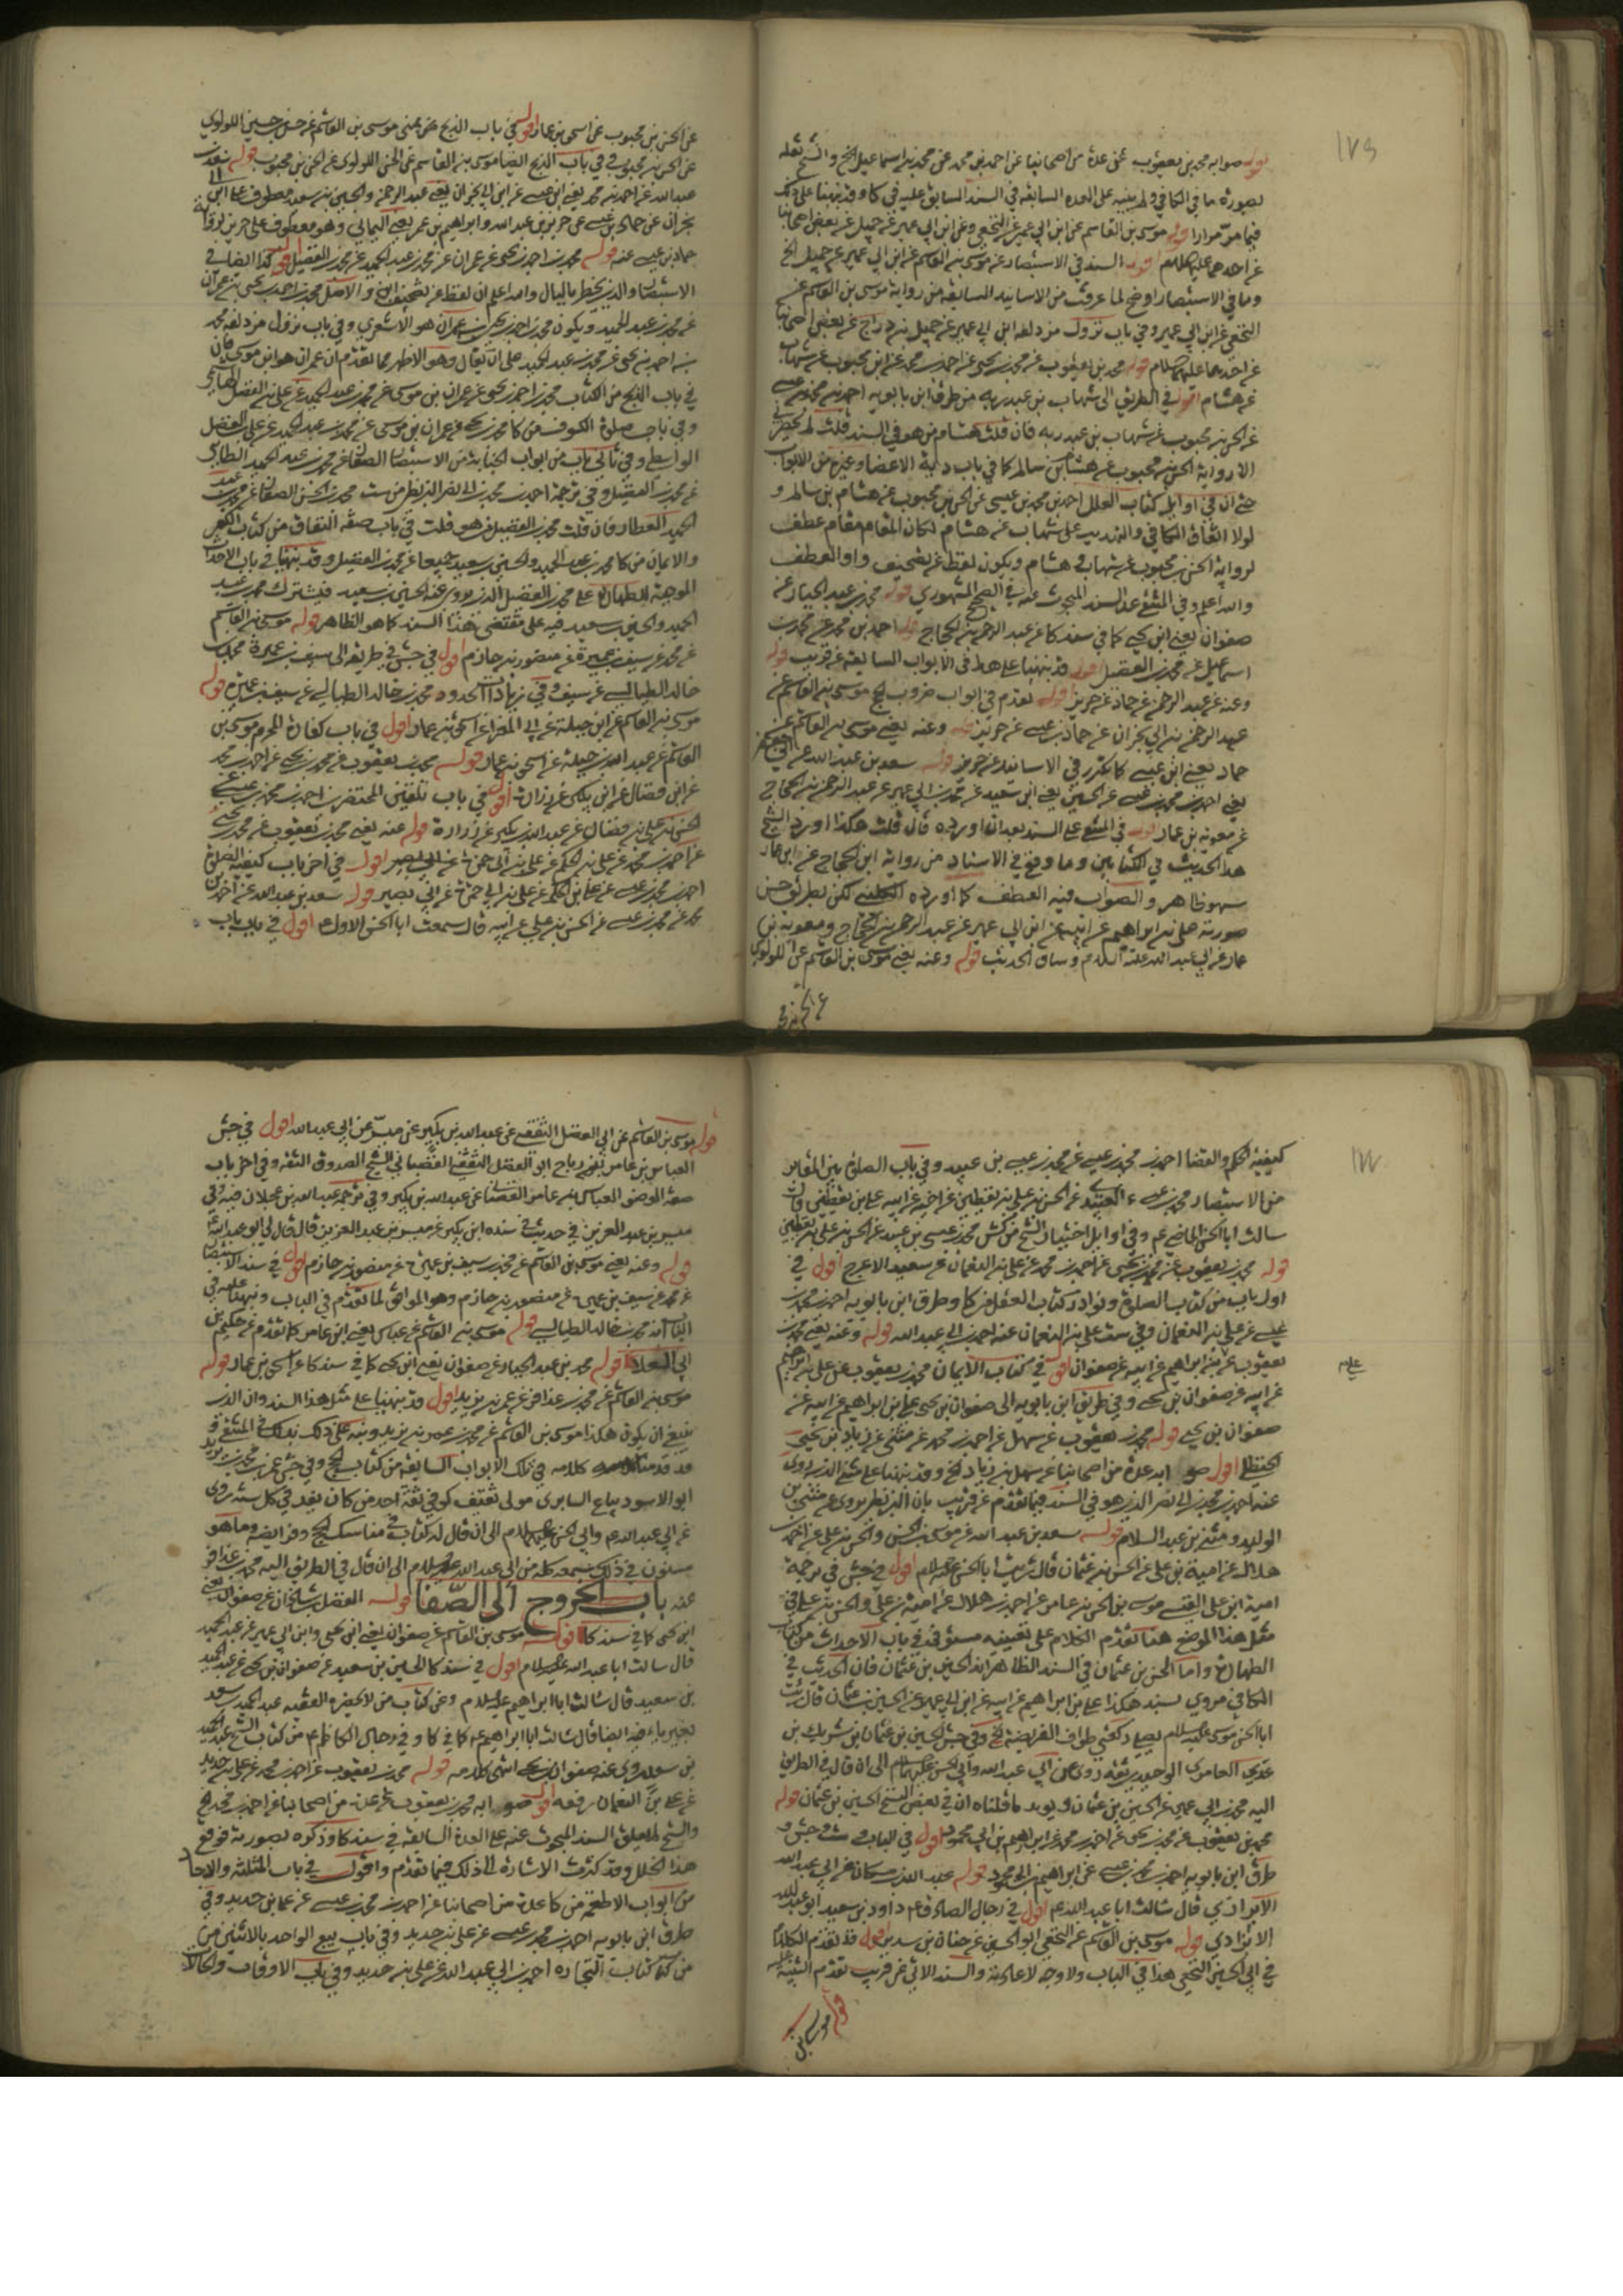 قوله صوابه محمد بن يعقوب عن عدة من اصحابنا عن احمد بن محمد عن محمد بن اسماعيل الخ والشيخ نقله
بصورة ما في الكافي ولم يبنيه على العدة السابقة في السند السابق عليه في كا وقد نبهنا على ذلك
فيما مر مرارا قوله موسى بن القاسم عن ابن ابي عمير عن النخعي وعن ابن ابي عمير عن جميل عن بعض اصحابنا
عن احدهما عليهما السلام اقول السند في الاستبصار عن موسى بن القاسم عن ابن ابي عمير عن جميل الخ
وما في الاستبصار اوضح لما عرفت من الاسانيد السابقة من رواية موسى بن القاسم عن
النخعي عن ابن ابي عمير وفي باب نزول مزدلفه ابن ابي عمير عن جميل بن دراج عن بعض اصحابنا
عن احدهما عليهما السلام قوله محمد بن يعقوب عن محمد بن يحيى عن احمد بن محمد عن ابن محبوب عن شهاب
عن هشام اقول في الطريق الى شهاب بن عبد ربه من طرق ابن بابويه احمد بن محمد بن عيسى
عن الحسن بن محبوب عن شهاب بن عبد ربه فان قلت هشام من هو في السند قلت لم يحضرني
الا رواية الحسن بن محبوب عن هشام بن سالم كا في باب دية الاعضا وغيره من الابواب
حتى ان في اوايل كتاب العلل احمد بن محمد بن عيسى عن الحسن بن محبوب عن هشام بن سالم و
لولا اتفاق الكافي والتهذيب على شهاب عن هشام لكان المقام مقام عطف
لرواية الحسن بن محبوب عن شهاب وهشام ويكون لفظ عن تصحيف واو العطف
والله اعلم وفي المنتقى عد السند المبحوث عنه في الصحيح المشهوري قوله محمد بن عبد الجبار عن
صفوان يعني ابن يحيى كما في سند كا عن عبد الرحمن بن الحجاج قوله احمد بن محمد عن محمد بن
اسماعيل عن محمد بن الفضيل اقول قد نبهنا عليهما في الابواب السابقة عن قريب قوله
وعنه عن عبد الرحمن عن حماد عن حريز اقول تقدم في ابواب ضروب الحج موسى بن القاسم عن
عبد الرحمن بن ابي نجران عن حماد بن عيسى عن حريز قوله وعنه يعني موسى بن القاسم عن
حماد يعني ابن عيسى كا تكرر في الاسانيد عن حريز قوله سعد بن عبد الله عن ابي جعفر
يعني احمد بن محمد بن عيسى عن الحسين يعني ابن سعيد عن محمد بن ابي عمير عن عبد الرحمن بن الحجاج
عن معوية بن عمار اقول في المنتقى على السند بعد ان اورده قال قلت هكذا اورد الشيخ
هذا الحديث في الكتابين وما وقع في الاسناد من رواية ابن الحجاج عن ابن عمار
سهو ظاهر والصواب فيه العطف كما اورده الكليني لكن بطريق حسن
صورته علي بن ابراهيم عن ابيه عن ابن ابي عمير عن عبد الرحمن بن الحجاج ومعوية بن
عمار عن ابي عبد الله عليه السلام وساق الحديث قوله وعنه يعني موسى بن القاسم عن اللولوي
عن الحسن بن محبوب عن اسحق بن عمار اقول في باب الذبح عن يمنى موسى بن القاسم عن حسن بن حسين اللولوي
عن الحسن بن محبوب وفي باب الذبح ايضا موسى بن القاسم عن الحسن اللولوي عن الحسن بن محبوب قوله سعد بن
عبد الله عن احمد بن محمد يعني ابن عيسى عن ابن ابي نجران يعني عبد الرحمن والحسين بن سعيد معطوف على ابن ابي
نجران عن حماد بن عيسى عن حريز بن عبد الله وابراهيم بن عمر يعني اليماني وهو معطوف على حريز لرواية
حماد بن عيسى عنه قوله محمد بن احمد بن يحيى عن عمران عن محمد بن عبد الحميد عن محمد بن الفضيل اقول كذا ايضا في
الاستبصار والذي يخطر بالبال والله اعلم ان لفظ عن تصحيف ابن والاصل محمد بن احمد بن يحيى بن عمران
عن محمد بن عبد الحميد ويكون محمد بن احمد بن يحيى بن عمران هو الاشعري وفي باب نزول مزدلفه محمد
بن احمد بن يحيى عن محمد بن عبد الحميد على ان يقال وهو الاظهر مما تقدم ان عمران هو ابن موسى فان
في باب الذبح من الكتاب محمد بن احمد بن يحيى عن عمران بن موسى عن محمد بن عبد الحميد عن علي بن الفضل الطائي
وفي باب صلوة الكسوف من كا محمد بن يحيى عن عمران بن موسى عن محمد بن عبد الحميد عن علي بن الفضل
الواسطي وفي ثاني باب من ابواب الجنابة من الاستبصار الصفار عن محمد بن عبد الحميد الطائي
عن محمد بن الفضيل وفي ترجمة احمد بن محمد بن ابي نصر البزنطي من ست محمد بن الحسن الصفار عن محمد بن عبد
الحميد العطار فان قلت محمد بن الفضيل من هو قلت في باب صفة النفاق من كتاب الكفر
والايمان من كا محمد بن عبد الحميد والحسين بن سعيد جميعا عن محمد بن الفضيل وقد نبهنا في باب الاحداث
الموجبة للطهارة على محمد بن الفضيل الذي يروي عنه الحسين بن سعيد فيشترك محمد بن عبد
الحميد والحسين بن سعيد فيه على مقتضى هذا السند كما هو الظاهر قوله موسى بن القاسم
عن محمد عن سيف بن عميرة عن منصور بن حازم اقول في جش في طريقه الى سيف بن عميرة محمد بن
خالد الطيالسي عن سيف وفي زيادات الحدود محمد بن خالد الطيالسي عن سيف بن عميرة قوله
موسى بن القاسم عن ابن جبلة عن ابي المغرا عن اسحق بن عمار اقول في باب كفارة المحرم موسى بن
القاسم عن عبد الله بن جبلة عن اسحق بن عمار قوله محمد بن يعقوب عن محمد بن يحيى عن احمد بن محمد
عن ابن فضال عن ابن بكير عن زرارة اقول في باب تلقين المحتضرين احمد بن محمد بن عيسى
الحسن بن علي بن فضال عن عبد الله بن بكير عن زرارة قوله عنه يعني محمد بن يعقوب عن محمد بن يحيى
عن احمد بن محمد عن علي بن الحكم عن علي بن ابي حمزة عن ابي بصير اقول في اخر باب كيفية الصلوة
احمد بن محمد بن عيسى عن علي بن الحكم عن علي بن ابي حمزة عن ابي بصير قوله سعد بن عبد الله عن احمد بن
محمد عن محمد بن عيسى عن الحسن بن علي عن ابيه قال سمعت ابا الحسن الاول ع اقول في باب
كيفية الحكم والقضا احمد بن محمد بن عيسى عن محمد بن عيسى بن عبيد وفي باب الصلوة بين المقابر
من الاستبصار محمد بن عيسى العبيدي عن الحسن بن علي بن يقطين عن اخيه عن ابيه علي بن يقطين قال
سالت ابا الحسن الماضي ع وفي اوايل اختيار الشيخ من كش محمد بن عيسى بن عبيد عن الحسن بن علي بن يقطين
قوله محمد بن يعقوب عن محمد بن يحيى عن احمد بن محمد عن علي بن النعمان عن سعيد الاعرج اقول في
اول باب من كتاب الصلوة ونوادر كتاب العقل من كا وطرق ابن بابويه احمد بن محمد بن
عيسى عن علي بن النعمان وفي ست علي بن النعمان عنه احمد بن ابي عبد الله قوله وعنه يعني محمد بن
يعقوب عن علي بن ابراهيم عن ابيه عن صفوان اقول في كتاب الايمان محمد بن يعقوب عن علي بن ابراهيم
عن ابيه عن صفوان بن يحيى وفي طريق ابن بابويه الى صفوان بن يحيى علي بن ابراهيم عن ابيه عن
صفوان بن يحيى قوله محمد بن يعقوب عن سهل عن احمد بن محمد عن مثنى عن زياد بن يحيى
الحنظلي اقول صوابه عدة من اصحابنا عن سهل بن زياد الخ وقد نبهنا على مثنى الذي روى
عنه احمد بن محمد بن ابي نصر الذي هو في السند فيما تقدم عن قريب بان البزنطي يروي عن مثنى بن
الوليد ومثنى بن عبد السلام قوله سعد بن عبد الله عن موسى بن الحسن والحسن بن علي عن احمد بن
هلال عن امية بن علي عن الحسن بن عثمان قال رايت ابا الحسن عليه السلام اقول في جش في ترجمة
امية بن علي القيسي موسى بن الحسن بن عامر عن احمد بن هلال عن امية بن علي والحسن بن علي في
مثل هذا الموضع هنا تقدم الكلام على تعيينه مستوفى في باب الاحداث من كتاب
الطهارة واما الحسن بن عثمان في السند الظاهر انه الحسين بن عثمان فان الحديث في
الكافي مروي بسند هكذا علي بن ابراهيم عن ابيه عن ابن ابي عمير عن الحسين بن عثمان قال رايت
ابا الحسن موسى عليه السلام يصلي ركعتي طواف الفريضة الخ وفي جش الحسين بن عثمان بن شريك بن
عدي العامري الوحيدي ثقة روى عن ابي عبد الله وابي الحسن عليهما السلام الى ان قال في الطريق
اليه محمد بن ابي عمير عن الحسين بن عثمان ويويد ما قلناه ان في بعض النسخ الحسين بن عثمان قوله
محمد بن يعقوب عن محمد بن يحيى عن احمد بن محمد عن ابراهيم بن ابي محمود اقول في الباب وست وجش و
طرق ابن بابويه احمد بن محمد بن عيسى عن ابراهيم بن ابي محمود قوله عبد الله بن مسكان عن ابي عبد الله
الابزاري قال سالت ابا عبد الله ع اقول في رجال الصادق ع داود بن سعيد ابو عبد الله
الابزاري قوله موسى بن القاسم عن النخعي ابو الحسين عن حنان بن سدير اقول قد تقدم الكلام
في ابي الحسين النخعي هذا في الباب ولا وجه لاعادته والسند الاتي عن قريب تقدم التنبيه عليه
قوله موسى بن
قوله موسى بن القاسم عن ابي الفضل الثقفي عن عبد الله بن بكير عن ميسر عن ابي عبد الله اقول في جش
العباس بن عامر بن رباح ابو الفضل الثقفي القصباني الشيخ الصدوق الثقة وفي اخر باب
صفة الوضو العباس بن عامر القصباني عن عبد الله بن بكير وفي ترجمة عبد الله بن عجلان
ميسر بن عبد العزيز في حديث في سنده ابن بكير عن ميسر بن عبد العزيز قال قال لي ابو عبد الله ع
قوله وعنه يعني موسى بن القاسم عن محمد بن سيف بن عميرة عن منصور بن حازم اقول في سند الاستبصار
عن محمد عن سيف بن عميرة عن منصور بن حازم وهو الموافق لما تقدم في الباب ونبهنا عليه في
الباب انه محمد بن خالد الطيالسي قوله موسى بن القاسم عن عباس يعني ابن عامر كا تقدم عن حكيم بن
ابي العلا قوله محمد بن عبد الجبار عن صفوان يعني ابن يحيى كا في سند كا عن اسحق بن عمار قوله
موسى بن القاسم عن محمد بن عذافر عن عمر بن يزيد اقول قد نبهنا على مثل هذا السند وان الذي
ينبغي ان يكون هكذا موسى بن القاسم عن محمد بن عمر بن يزيد ونبه على ذلك كذلك في المنتقى و
قد قدمنا كلامه في تلك الابواب السابقة من كتاب الحج وفي جش عمر بن محمد بن يزيد
ابو الاسود بياع السابري مولى ثقيف كوفي ثقة احد من كان يفد في كل سنة روى
عن ابي عبد الله ع وابي الحسن عليهما السلام الى ان قال له كتاب في مناسك الحج وفرايضه وما هو
مسنون في ذلك سمعه كله من ابي عبد الله عليه السلام الى ان قال في الطريق اليه محمد بن عذافر
عنه باب الخروج الى الصفا قوله الفضل بن شاذان عن صفوان يعني
ابن يحيى كا في سند كا قوله موسى بن القاسم عن صفوان يعني ابن يحيى وابن ابي عمير عن عبد الحميد
قال سالت ابا عبد الله عليه السلام اقول في سند كا الحسين بن سعيد عن صفوان بن يحيى عن عبد الحميد
بن سعيد قال سالت ابا ابراهيم عليه السلام وعن كتاب من لا يحضره الفقيه عبد الحميد بن سعد
بغير ياء فيه ايضا قال سالت ابا ابراهيم ع كا في كا وفي رجال الكاظم ع من كتاب الشيخ عبد الحميد
بن سعيد روى عنه صفوان بن يحيى انتهى كلامه قوله محمد بن يعقوب عن احمد بن محمد عن علي بن حديد
عن علي بن النعمان رفعه اقول صوابه محمد بن يعقوب عن عدة من اصحابنا عن احمد بن محمد الخ
والشيخ لم يعلق السند المبحوث عنه على العدة السابقة في سند كا وذكره بصورته فوقع
هذا الخلل وقد كثرت الاشارة الى ذلك فيما تقدم واقول في باب المثلثة والاحا
من ابواب الاطعمة من كا عدة من اصحابنا عن احمد بن محمد بن عيسى عن علي بن حديد وفي
طرق ابن بابويه احمد بن محمد بن عيسى عن علي بن حديد وفي باب بيع الواحد بالاثنين من
من كتاب التجارة احمد بن ابي عبد الله عن علي بن حديد وفي باب الاوقاف والحالا